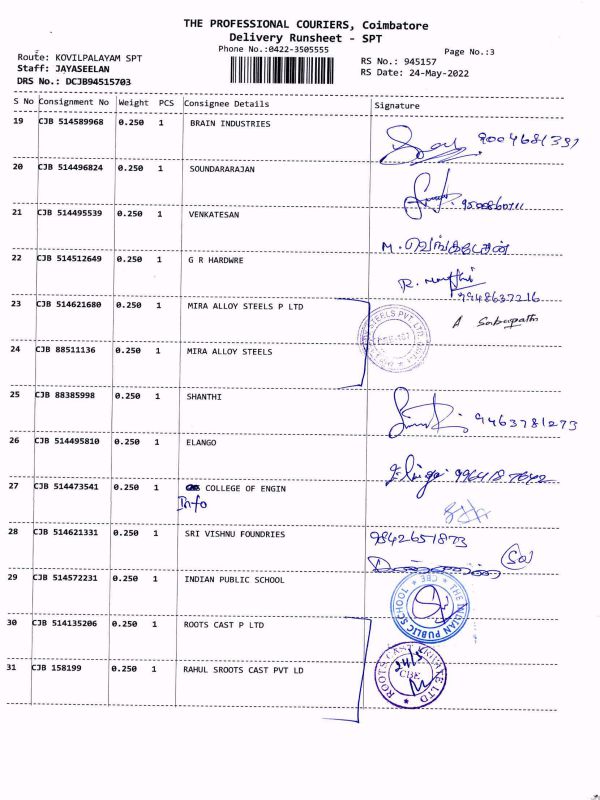 THE PROFESSIONAL COURIERS, Coimbatore
Delivery Runsheet - SPT
Phone No.:0422-3505555
Page No.:3
Route: KOVILPALAYAM SPT
RS No.: 945157
Staff: JAYASEELAN
RS Date: 24-May-2022
DRS No.: DCJB94515703
S No Consignment No Weight PCS Consignee Details Signature
19 CJB 514589968 0.250 1 BRAIN INDUSTRIES
9004681391
20 CJB 514496824 0.250 1 SOUNDARARAJAN
21 CJB 514495539 0.250 1 VENKATESAN
M. வெங்கடேசன்
22 CJB 514512649 0.250 1 G R HARDWRE
9948637216
23 CJB 514621680 0.250 1 MIRA ALLOY STEELS P LTD
A Sabapathi
24 CJB 88511136 0.250 1 MIRA ALLOY STEELS
25 CJB 88385998 0.250 1 SHANTHI
9463781273
26 CJB 514495810 0.250 1 ELANGO
27 CJB 514473541 0.250 1 COLLEGE OF ENGIN
Info
28 CJB 514621331 0.250 1 SRI VISHNU FOUNDRIES
9842651873
29 CJB 514572231 0.250 1 INDIAN PUBLIC SCHOOL
THE INDIAN PUBLIC SCHOOL CBE
30 CJB 514135206 0.250 1 ROOTS CAST P LTD
31 CJB 158199 0.250 1 RAHUL SROOTS CAST PVT LD
ROOTS CAST PRIVATE LTD
24/5
CBE